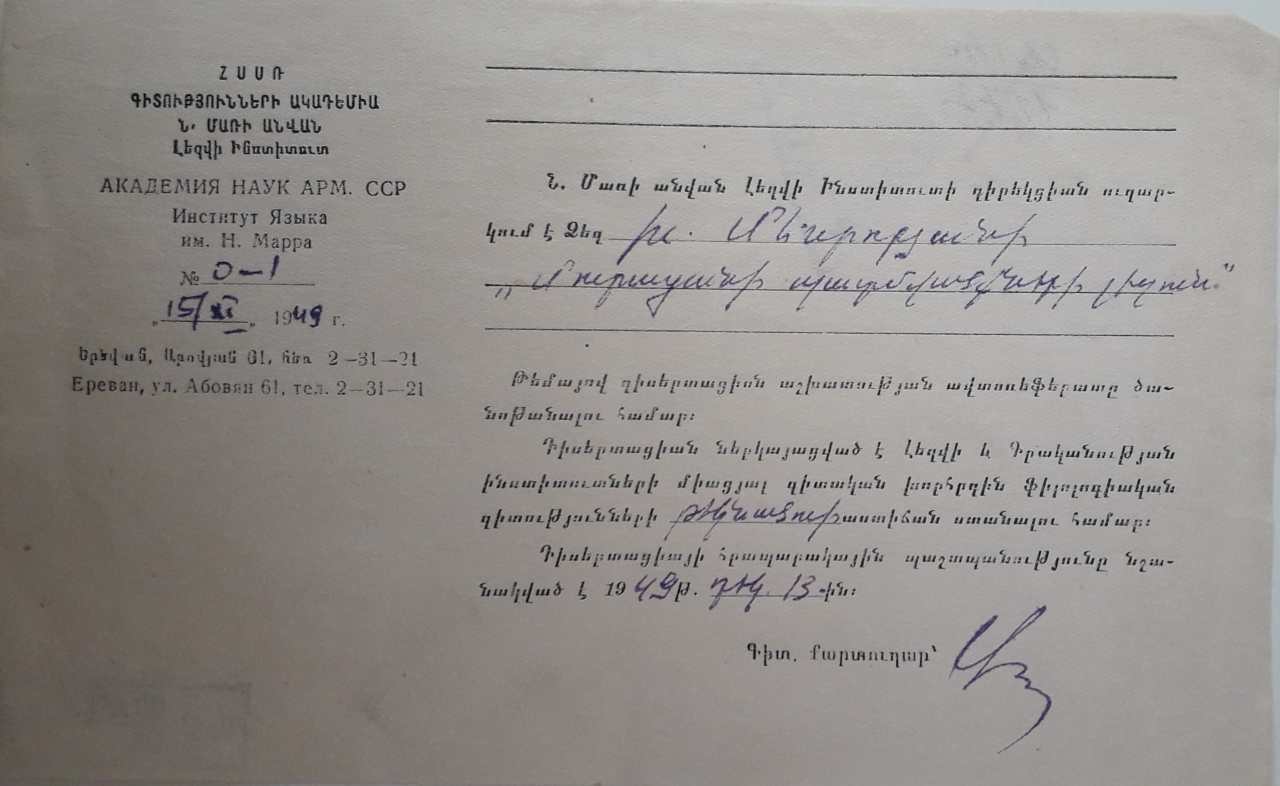 ՀՍՍՌ
ԳԻՏՈՒԹՅՈՒՆՆԵՐԻ ԱԿԱԴԵՄԻԱ
Ն. ՄԱՌԻ ԱՆՎԱՆ
Լեզվի Ինստիտուտ
АКАДЕМИЯ НАУК АРМ. ССР
Институт Языка
им. Н. Марра
№ 0-1
„15/XI„ 1949 г.
Երևան, Աբովյան 61, հեռ. 2—31—21
Ереван, ул. Абовян 61, тел. 2—31—21
Ն. Մառի անվան Լեզվի Ինստիտուտի դիրեկցիան ուղար-
կում է Ձեզ
„Մուրացանի պատմվածքների լեզուն"
Թեմայով դիսերտացիոն աշխատության ավտոռեֆերատը ծա-
նոթանալու համար։
Դիսերտացիան ներկայացված է Լեզվի և Գրականության
ինստիտուտների միացյալ գիտական խորհրդին ֆիլոլոգիական
գիտությունների թեկնածուի աստիճան ստանալու համար։
Դիսերտացիայի հրապարակային պաշտպանությունը նշա-
նակված է 1949 թ. դեկ. 13-ին։
Գիտ. քարտուղար՝